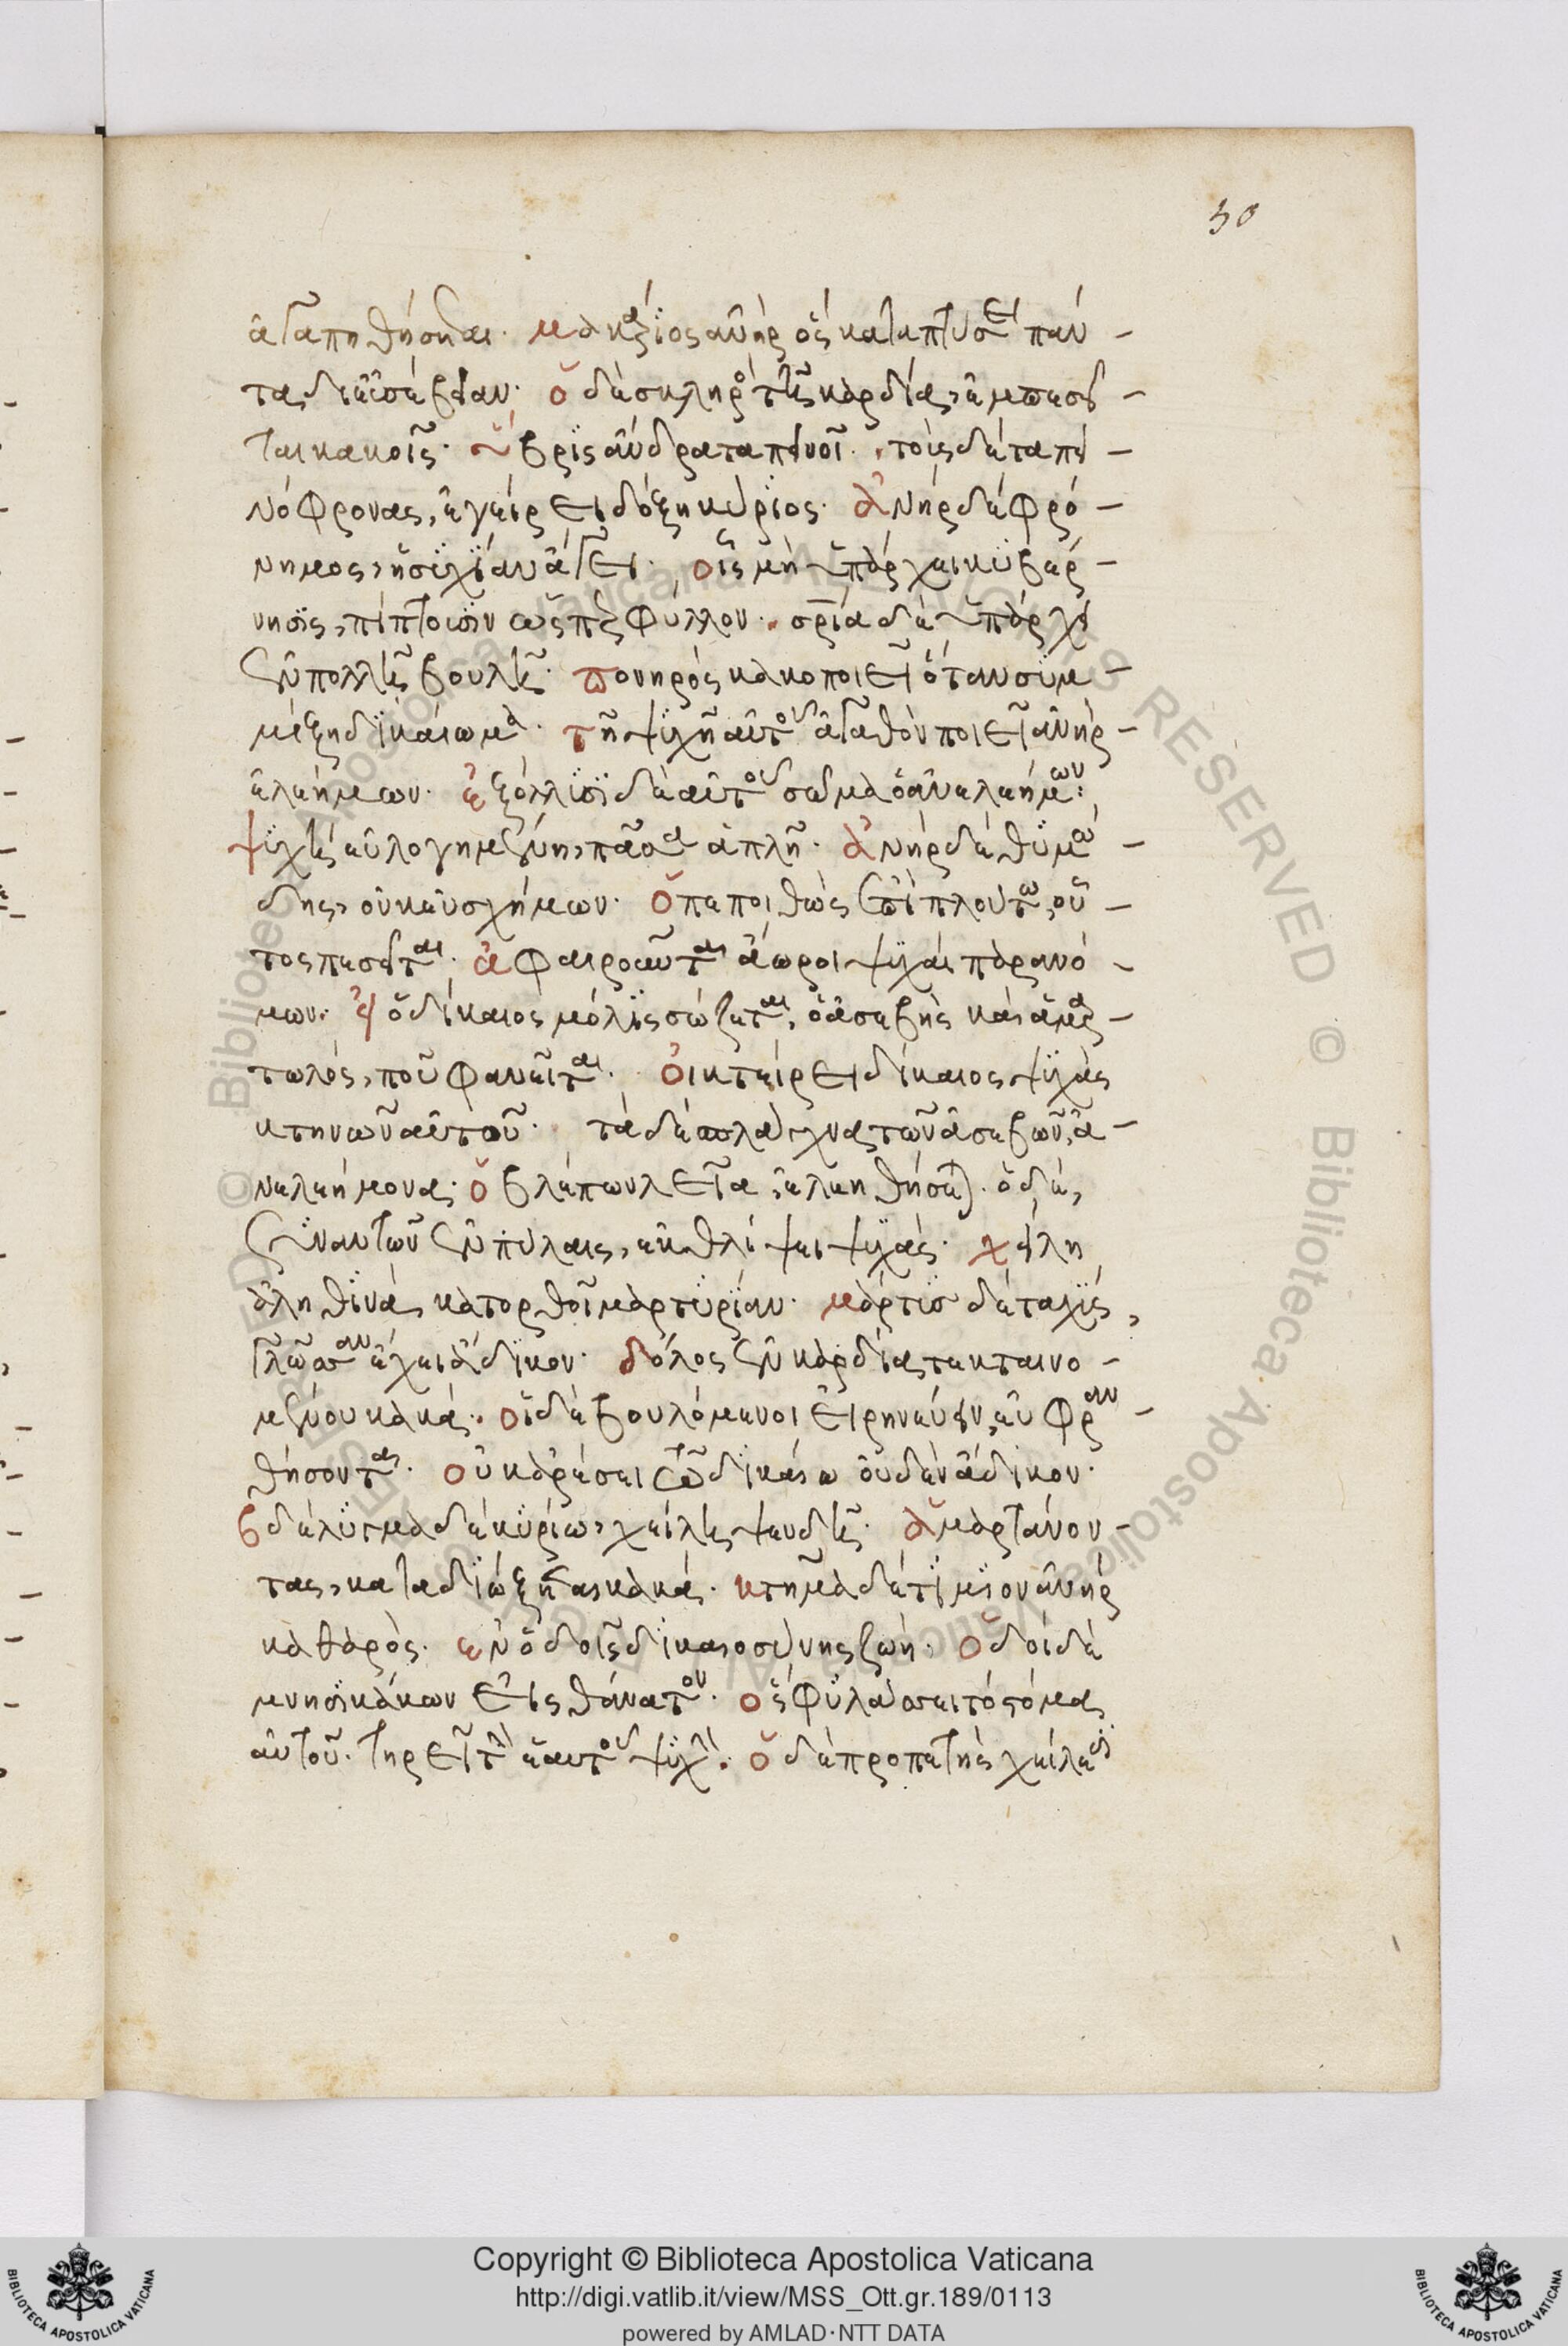 50
ἀγαπηθήσηται. μακάριος ἀνὴρ ὃς καταπτύσει πάν-
τας δι' εὐσέβειαν. ὁ δὲ σκληρὸς τῆς καρδίας, ἐμπεσεῖ-
ται κακοῖς. ὕβρις ἄνδρα ταπεινοῖ. τοὺς δὲ ταπει-
νόφρονας, ἐγείρει δόξῃ κύριος. ἀνὴρ δὲ φρό-
νημος, ἡσυχίαν ἄγει. οἷς μὴ ὑπάρχει κυβέρ-
νησις, πίπτουσιν ὥσπερ φύλλον. σρία δὲ ὑπάρχει
ἐν πολλῆς βουλῆς. πονηρὸς κακοποιεῖ ὅταν συμ-
μέξῃ δικαίωμα. τῇ ψυχῇ αὐτοῦ ἀγαθὸν ποιεῖ ἀνὴρ
ἐλεήμων. ἐξολλύσι δὲ αὐτοῦ σῶμα ὁ ἀνελεήμων:
ψυχὴ εὐλογημένη, πᾶσα ἁπλῆ. ἀνὴρ δὲ θυμώ-
δης, οὐκ εὐσχήμων. ὁ πεποιθὼς ἐπὶ πλούτω, οὗ-
τος πεσεῖται. ἀφαιροῦνται ἄωροι ψυχαὶ παρανό-
μων. εἰ ὁ δίκαιος μόλις σώζεται, ὁ ἀσεβὴς καὶ ἁμαρ-
τωλὸς, ποῦ φανεῖται. οἰκτείρει δίκαιος ψυχὰς
κτηνῶν αὐτοῦ. τὰ δὲ σπλάγχνα τῶν ἀσεβῶν, ἀ-
νελεήμονα. ὁ βλέπων λεῖα, ἐλεηθήσεται. ὁ δὲ,
συναντῶν ἐν πύλαις, ἐκθλίψει ψυχάς. χείλη
ἀληθινὰ, κατορθοῖ μαρτυρίαν. μάρτυς δὲ ταχὺς,
γλῶσσαν ἔχει ἄδικον. δόλος ἐν καρδία τεκταινο-
μένου κακά. οἱ δὲ βουλόμενοι εἰρηνεύειν, εὐφραν-
θήσονται. οὐκ ἀρέσει τῶ δικαίω οὐδὲν ἄδικον.
βδέλυγμα δὲ κυρίω, χείλη ψευδῆ. ἁμαρτάνον-
τας, καταδιώξηται κακά. κτῆμα δὲ τίμιον ἀνὴρ
καθαρὸς. ἐν ὁδοῖς δικαιοσύνης ζωή. ὁδοὶ δὲ
μνησικάκων εἰς θάνατον. ὃς φυλάσσει τὸ στόμα
αὐτοῦ. τηρεῖ τὴν ἑαυτοῦ ψυχήν. ὁ δὲ προπετὴς χείλεσι
Copyright © Biblioteca Apostolica Vaticana
http://digi.vatlib.it/view/MSS_Ott.gr.189/0113
powered by AMLAD·NTT DATA